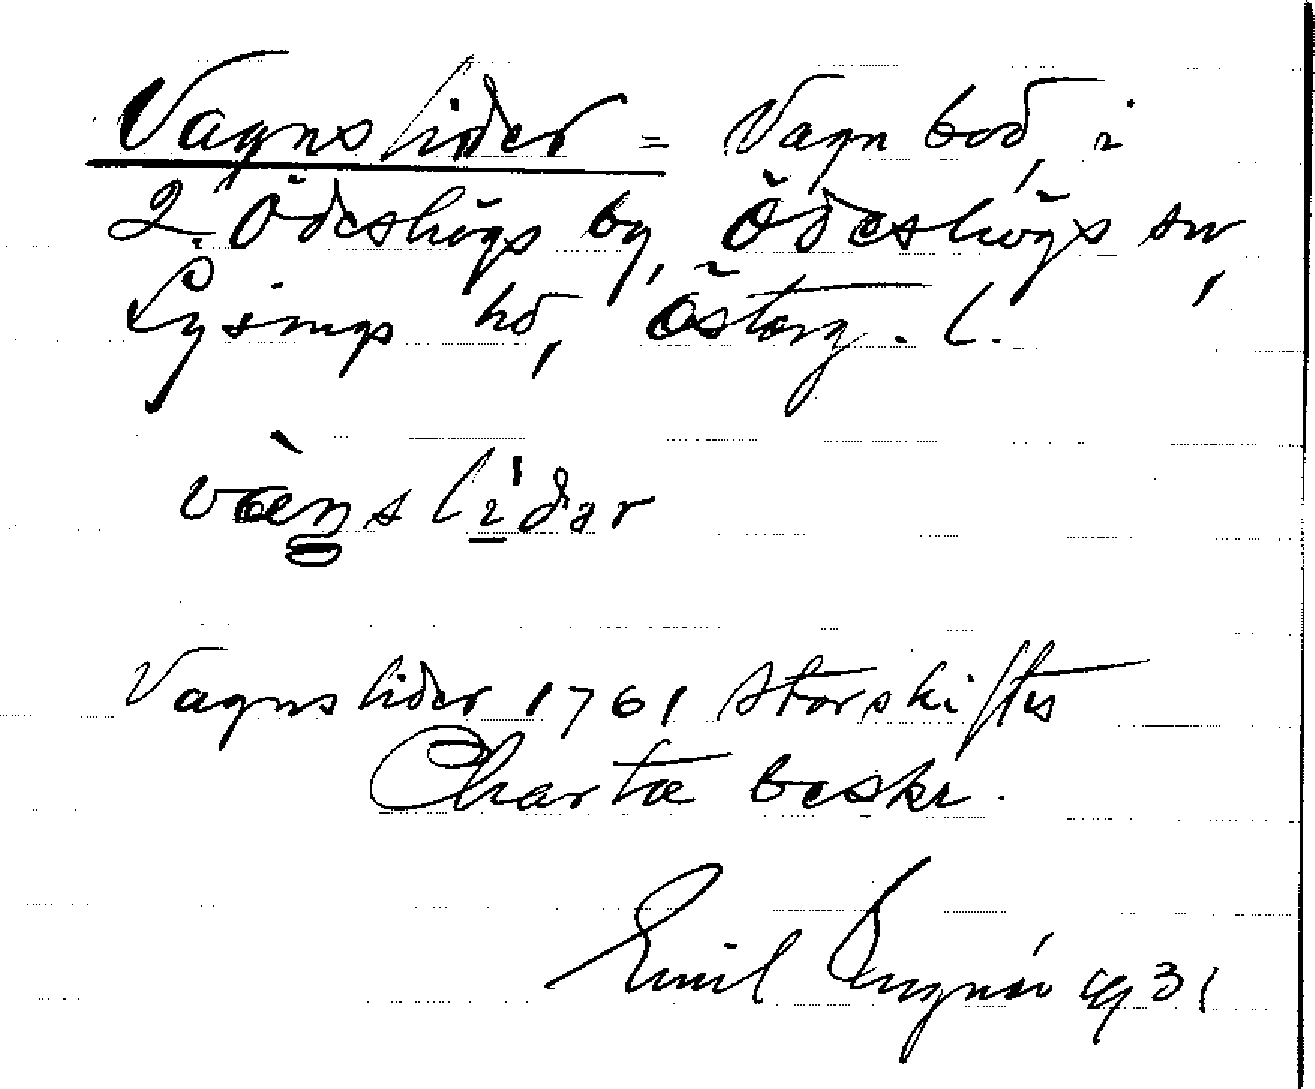 Vagnslider = Vagnbod, i
2. Ödeshögs by, Ödeshögs sn,
Lysings hd, Österg. l.
væ̀ns lídar
Vagnslider 1761 Storskiftes
Charta beskr.
Emil 1931